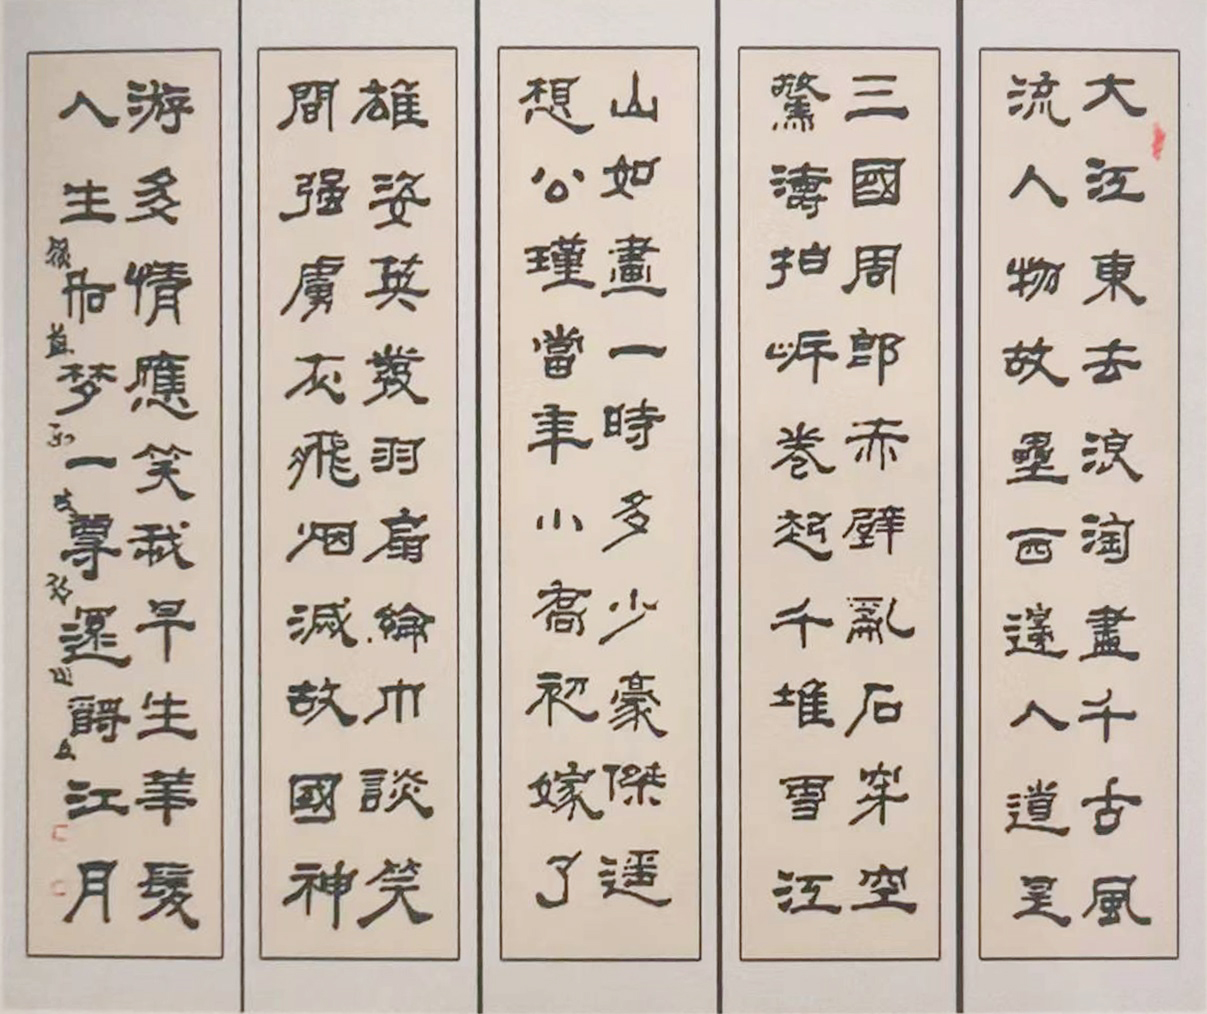 大江東去浪淘盡千古風
流人物故壘西邊人道是
三國周郎赤壁亂石穿空
驚濤拍岸卷起千堆雪江
山如畫一時多少豪傑遥
想公瑾當年小喬初嫁了
雄姿英發羽扇綸巾談笑
間强虜灰飛烟滅故國神
游多情應笑我早生華髮
人生如梦一尊還酹江月